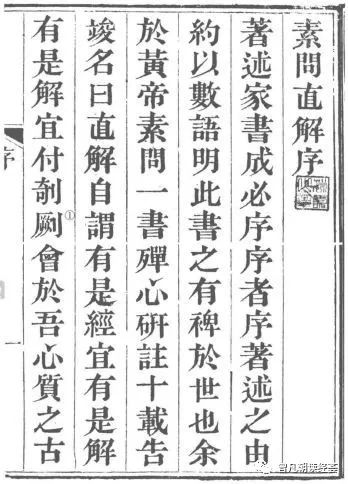 素問直解序
著述家書成必序序者序著述之由
約以數語明此書之有裨於世也余
於黃帝素問一書殫心硏註十載告
竣名曰直解自謂有是經宜有是解
有是解宜付剞劂①會於吾心質之古
序
一